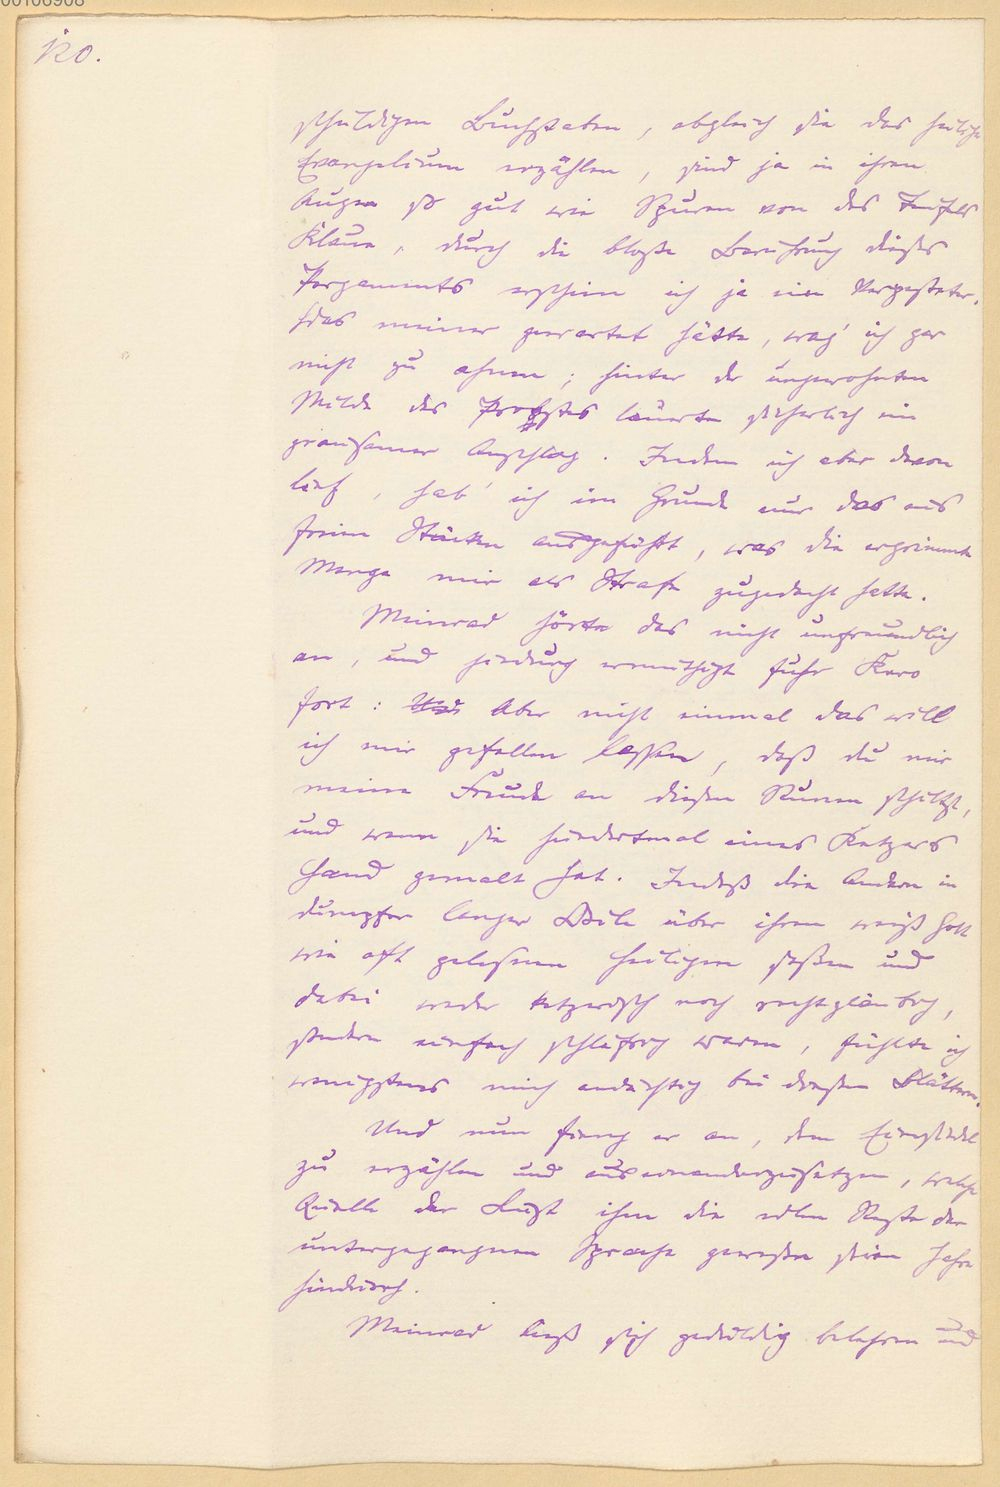 00106908
120.
schuldigen Buchstaben, obgleich sie das heilige
Evangelium erzählen, sind ja in ihren
Augen so gut wie Spuren von des Teufels
Klaue, durch die bloße Berührung dieses
Pergaments erschien ich ja ein Verpesteter.
Was meiner gewartet hätte, wag' ich gar
nicht zu ahnen; hinter der ungewohnten
Milde des Propstes lauerte sicherlich ein
grausamer Anschlag. Indem ich aber davon
lief, hab' ich im Grunde nur das aus
freien Stücken ausgeführt, was die ergrimmte
Menge mir als Strafe zugedacht hatte.
Meinrad hörte das nicht unfreundlich
an, und hiedurch ermuthigt fuhr Karo
fort: Und Aber nicht einmal das will
ich mir gefallen lassen, daß du mir
meine Freude an diesen Runen schiltst,
und wenn sie hundertmal eines Ketzers
Hand gemalt hat. Indeß die Andern in
dumpfer langer Weile über ihren weiß Gott
wie oft gelesenen Heiligen saßen und
dabei weder ketzerisch noch rechtgläubig,
sondern einfach schläfrig waren, fühlte ich
wenigstens mich andächtig bei diesen Blättern.
Und nun fieng er an, dem Einsiedel
zu erzählen und auseinanderzusetzen, welche
Quelle der Lust ihm die edlen Reste der
untergegangnen Sprache gewesen seien Jahre
hindurch.
Meinrad ließ sich geduldig belehren und